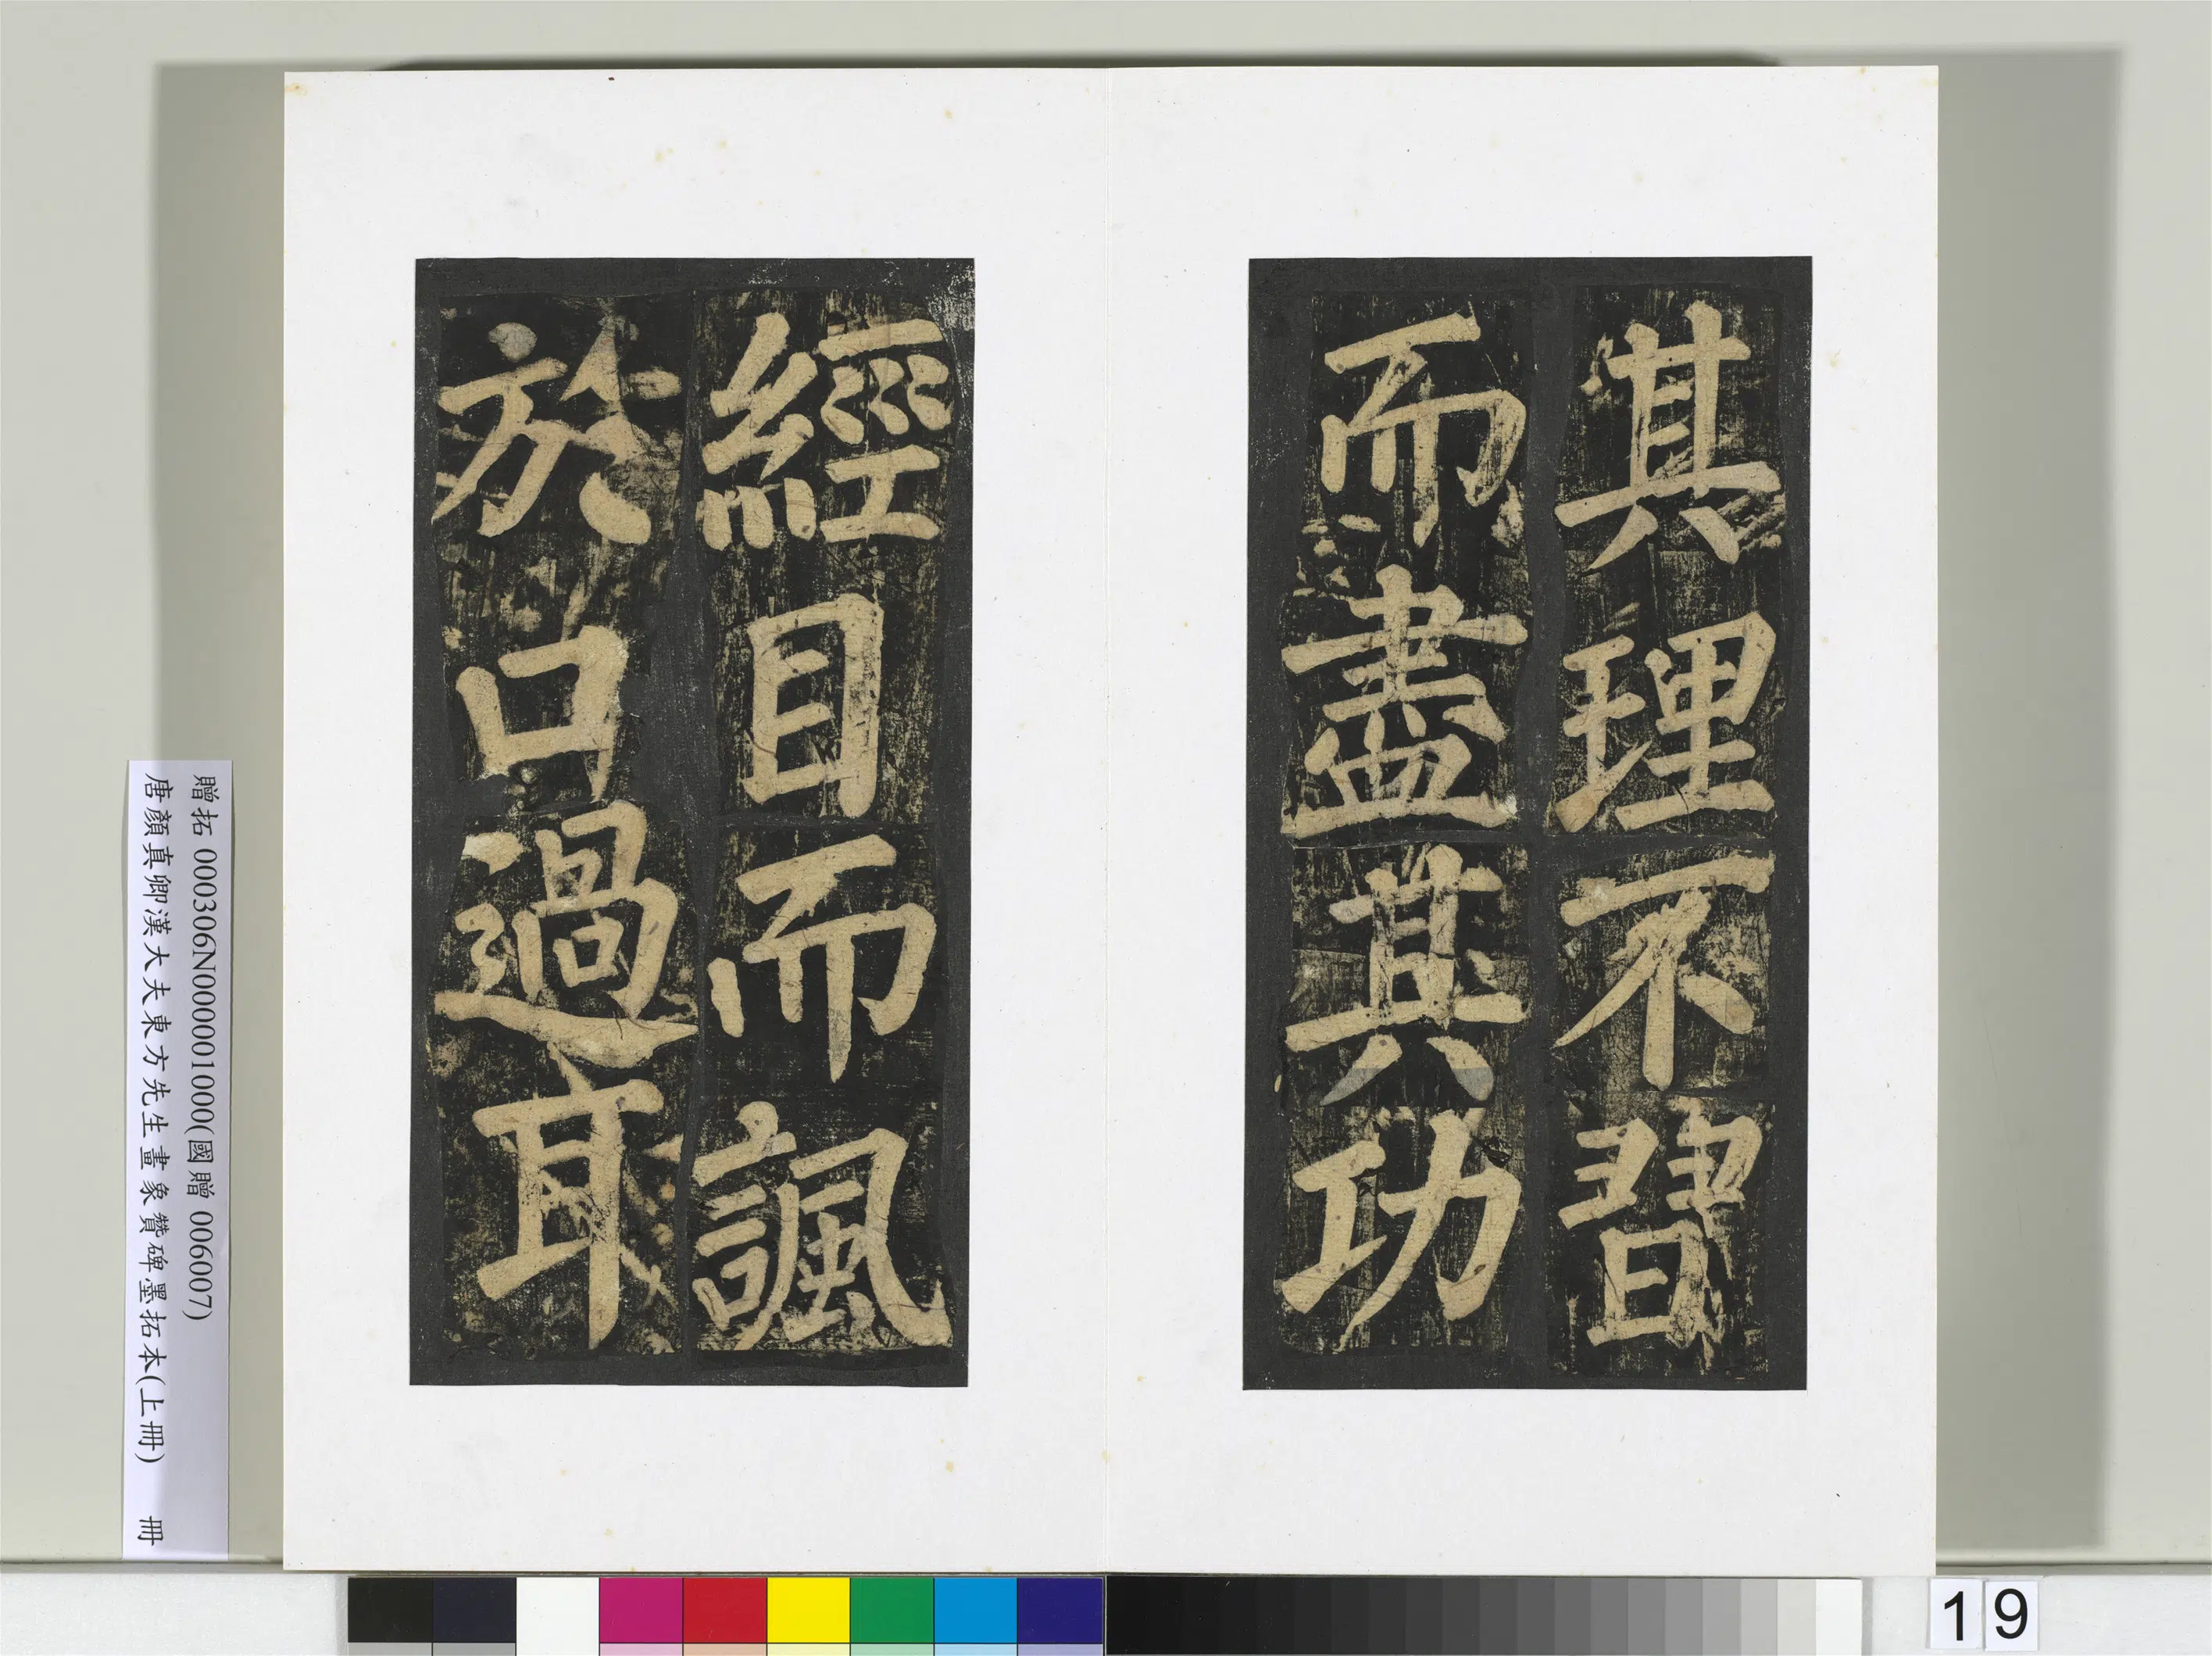 其理不習
而盡其功
經目而諷
於口過耳
贈拓 000306N000001000(國贈 006007)
唐顏真卿漢大夫東方先生畫象贊碑墨拓本(上冊) 冊
19